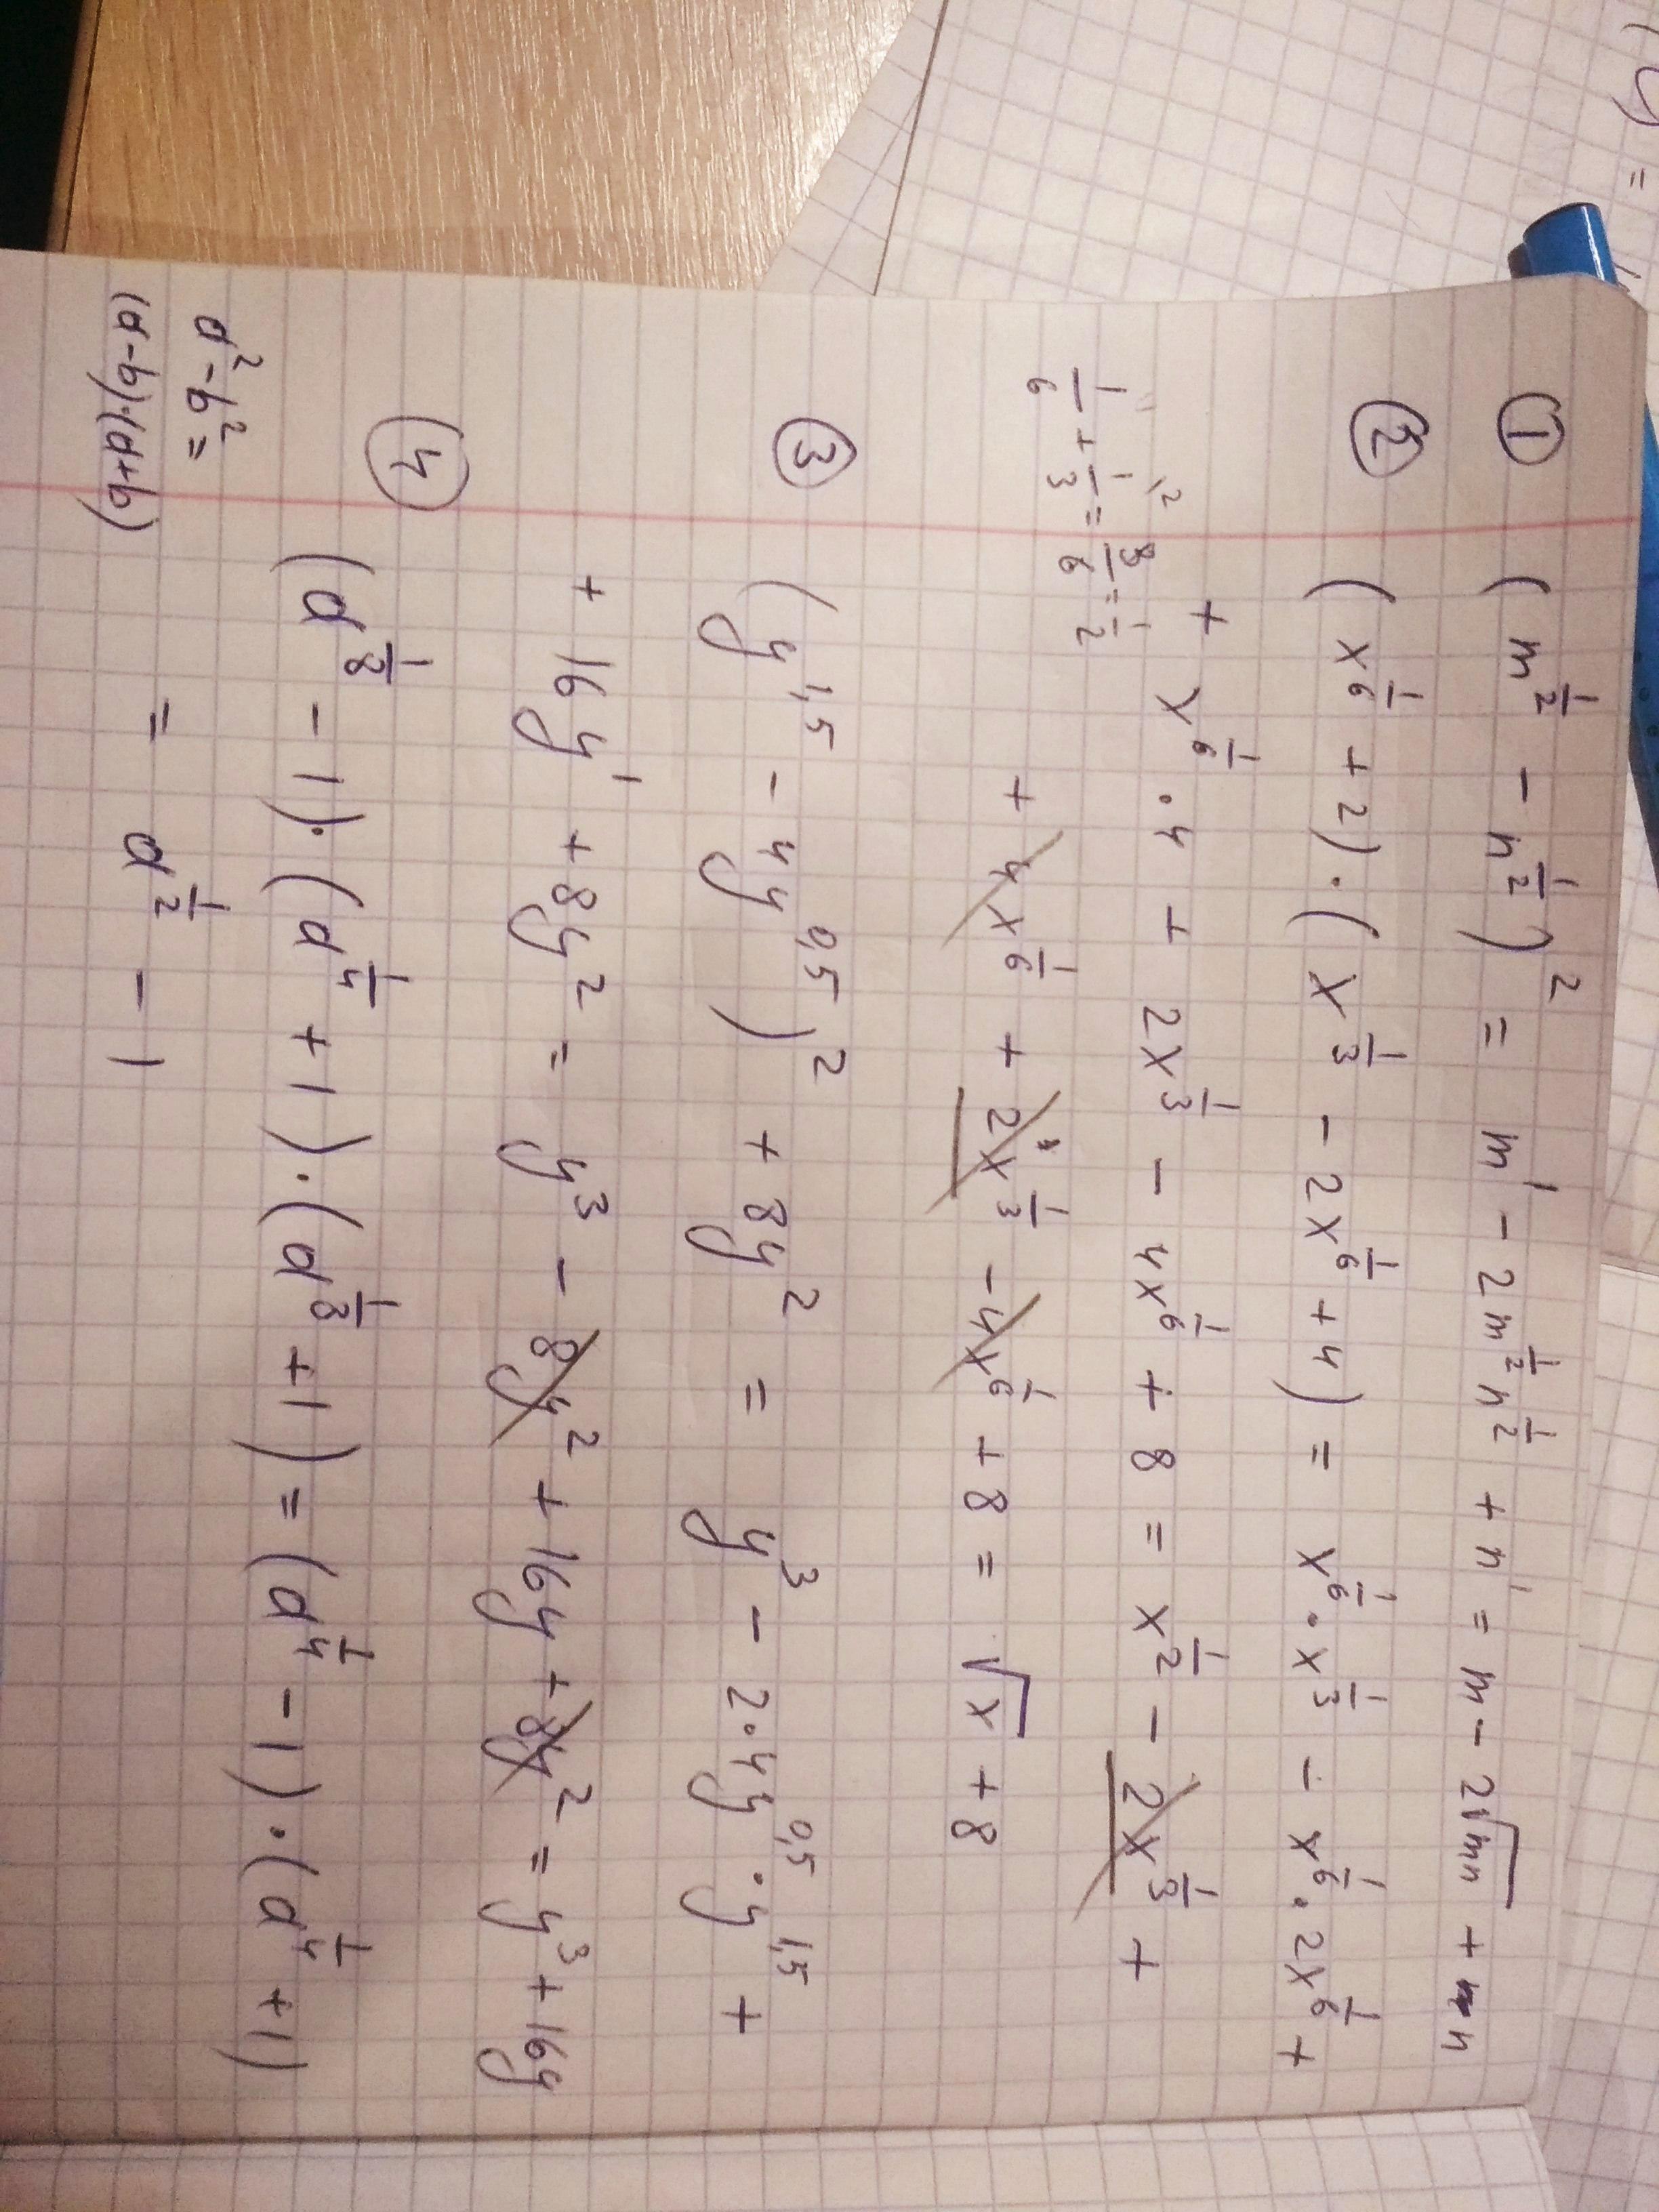 ① (m^{1/2} - n^{1/2})^2 = m^1 - 2m^{1/2}n^{1/2} + n^1 = m - 2√mn + n
② (x^{1/6} + 2)·(x^{1/3} - 2x^{1/6} + 4) = x^{1/6}·x^{1/3} - x^{1/6}·2x^{1/6} +
+ x^{1/6}·4 + 2x^{1/3} - 4x^{1/6} + 8 = x^{1/2} - 2x^{1/3} +
1/6 + 1/3 = 3/6 = 1/2
+ 4x^{1/6} + 2x^{1/3} - 4x^{1/6} + 8 = √x + 8
③ (y^{1,5} - 4y^{0,5})^2 + 8y^2 = y^3 - 2·4y^{0,5}·y^{1,5} +
+ 16y^1 + 8y^2 = y^3 - 8y^2 + 16y + 8y^2 = y^3 + 16y
④ (a^{1/8} - 1)·(a^{1/4} + 1)·(a^{1/8} + 1) = (a^{1/4} - 1)·(a^{1/4} + 1)
a^2 - b^2 =
(a-b)·(a+b)
= a^{1/2} - 1